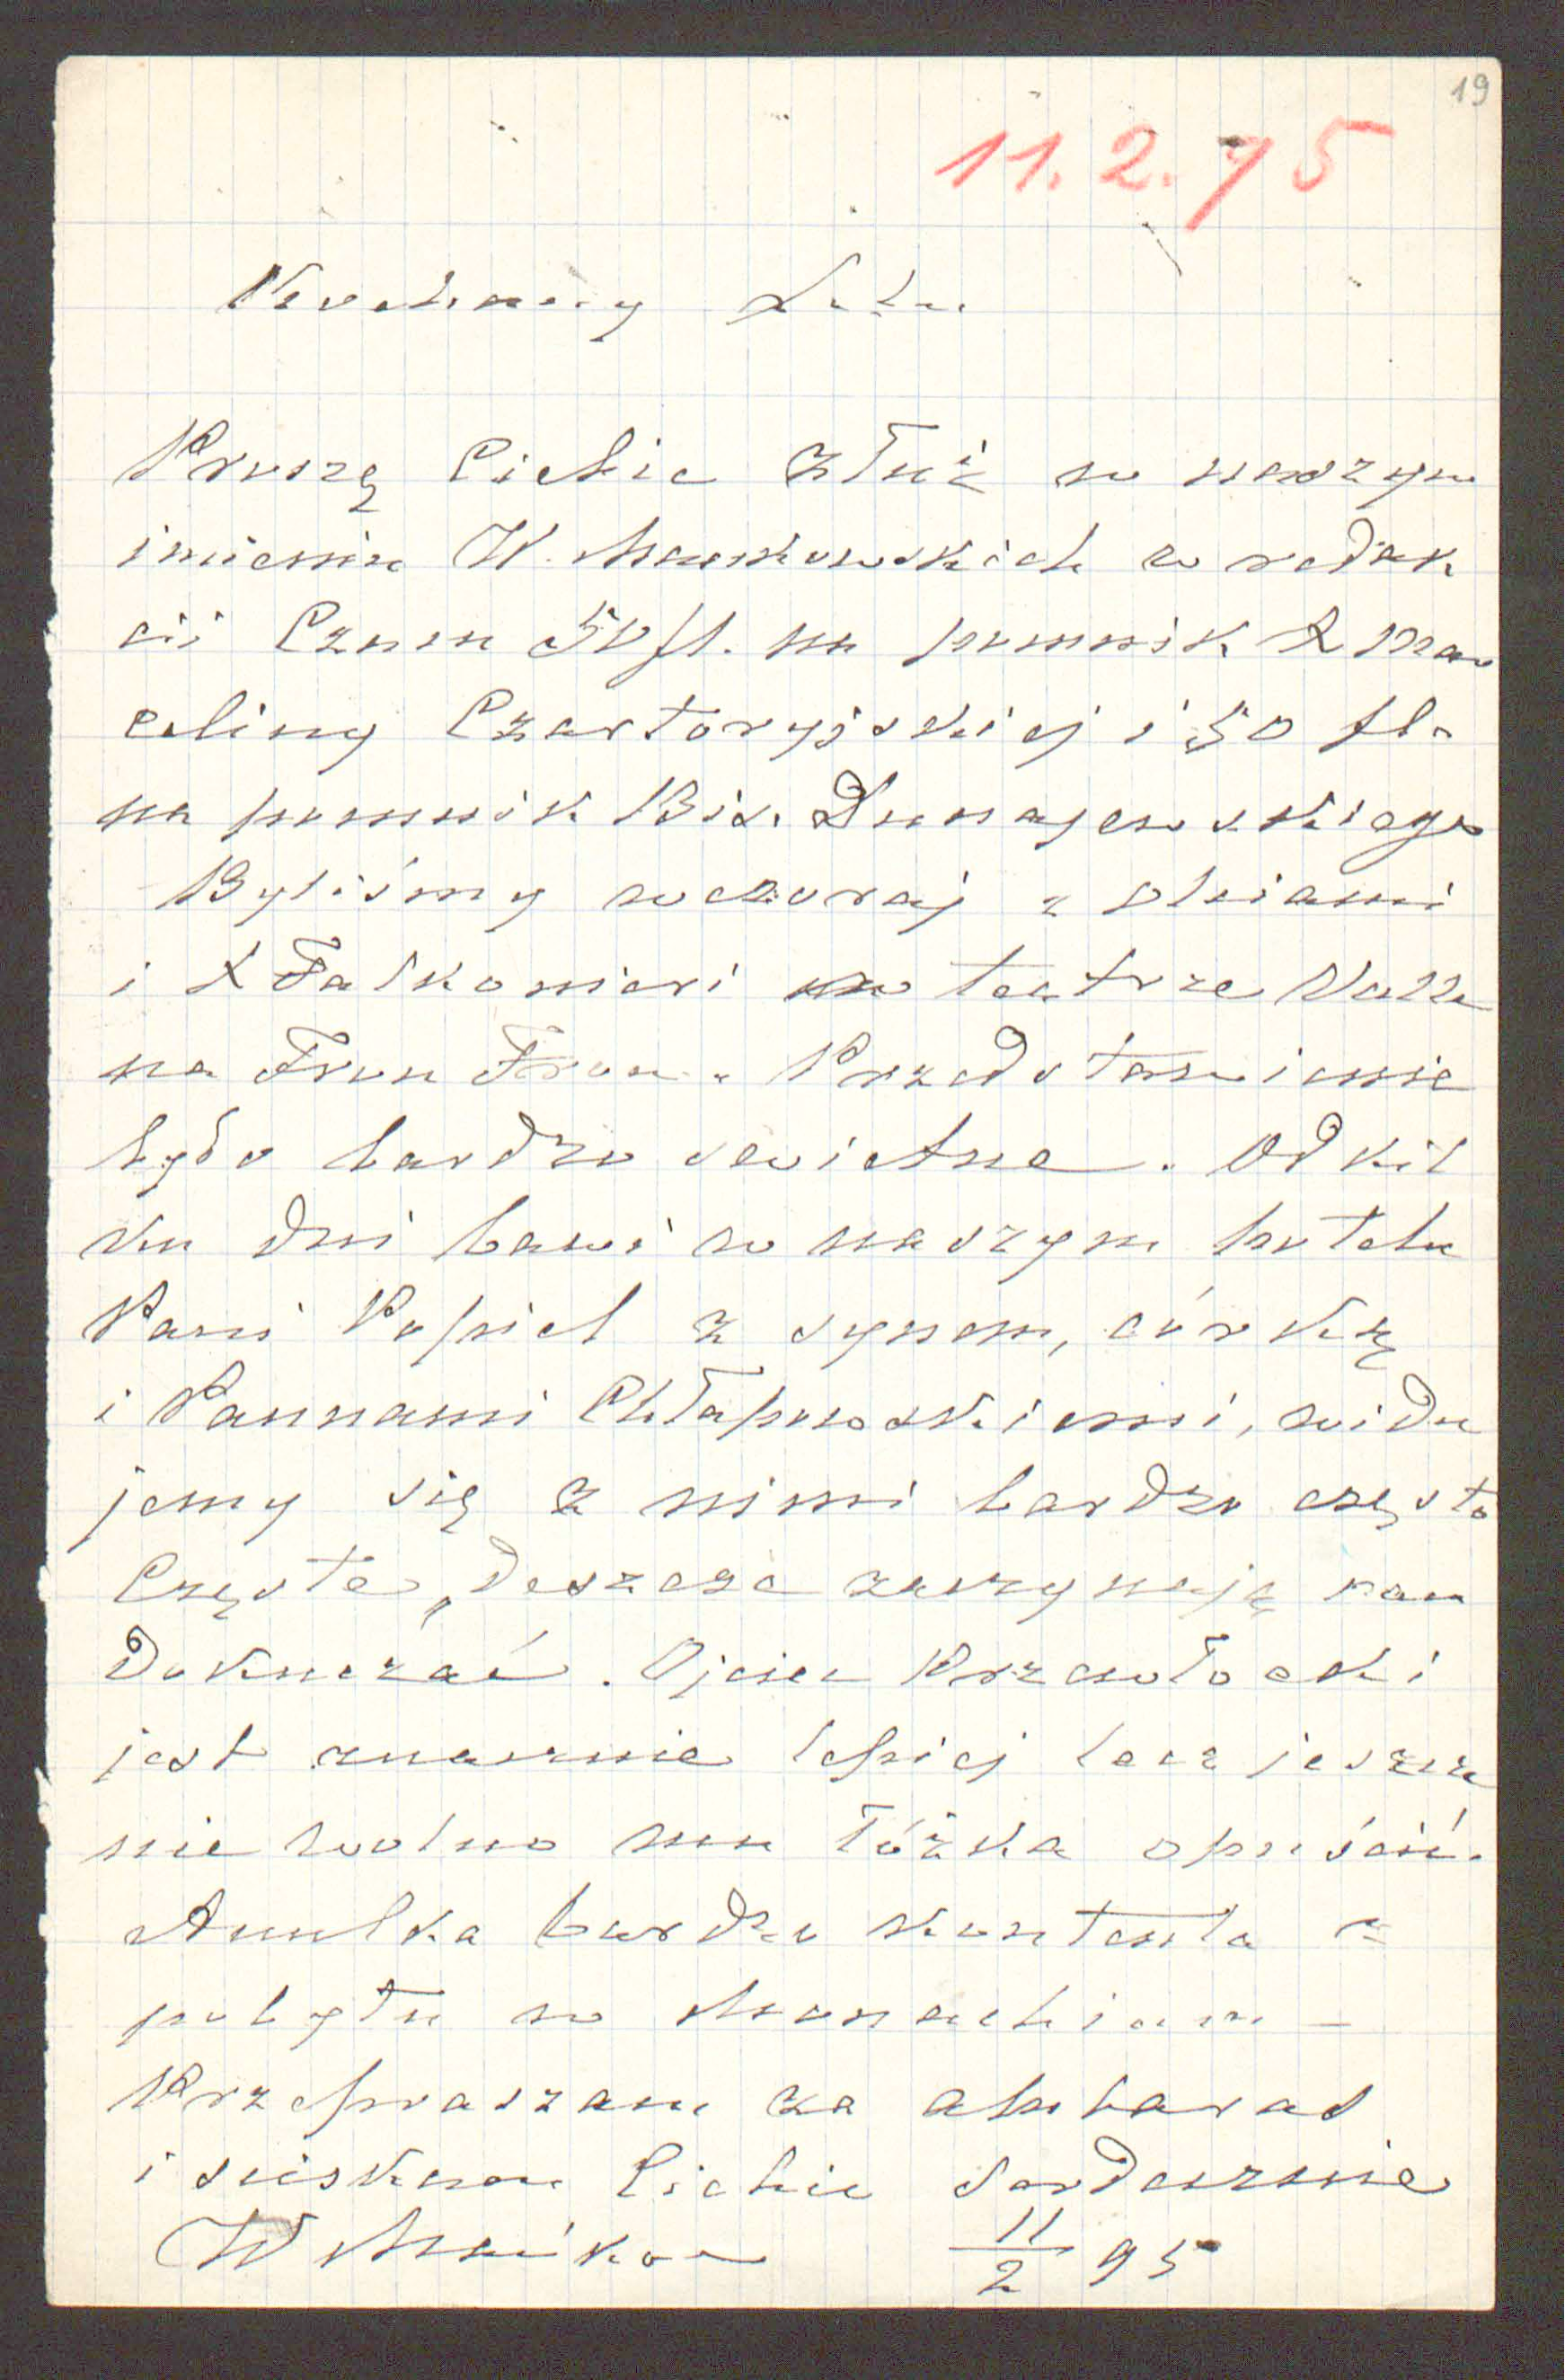 19
11.2.95
Kochany
Proszę Ciebie złóż w naszym
imieniu W. Mańkowskich w redak
cii Czasu 50 fl. na pomnik X Mar
celiny Czartoryjskiej i 50 fl.
na pomnik Bis. Dunajewskiego
Byliśmy wczoraj z
i X Falkonieri w teatrze Valle
na Frou Frou. Przedstawienie
było bardzo swietne. Od kil
ku dni bawi w naszym hotelu
Pani Popiel z synem, córką
i Pannami Chłapowskiemi, widu
jemy się z nimi bardzo często
Częste deszcze zaczynają nam
dokuczać. Ojciec Przewłocki
jest znacznie lepiej lecz jeszcze
nie wolno mu łóżka opuścić.
Anulka bardzo kontenta z
pobytu w Monachium –
Przepraszam za ambaras
i sciskam Ciebie serdecznie
W Mańkow
11/2 95